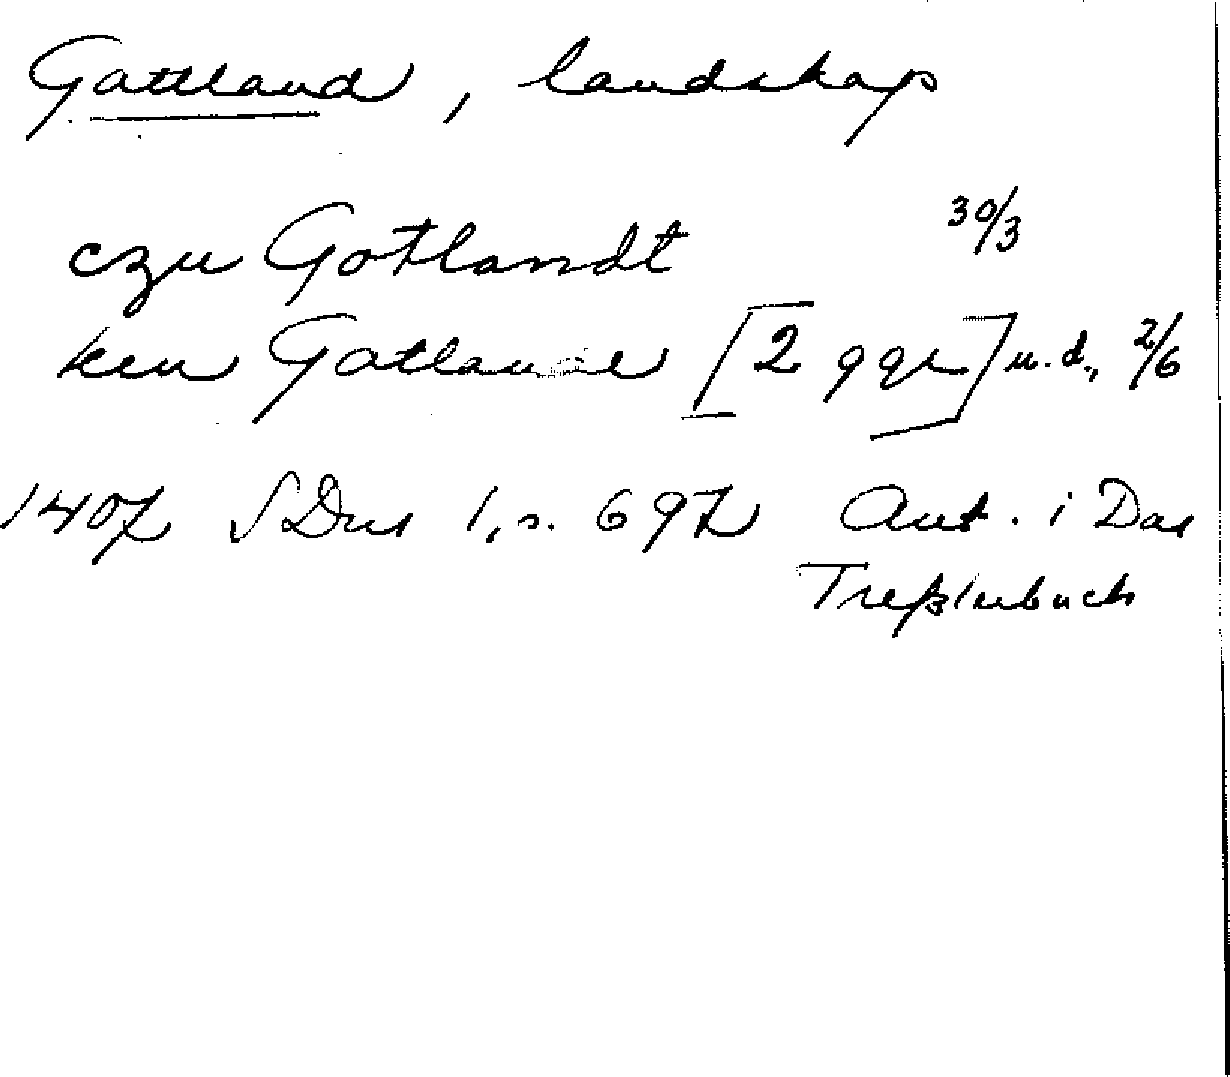 Gottland, landskap
czu Gotlandt 30/3
ken Gotlande [2 ggr] u.d., 2/6
1407 SDns 1, s. 697 Avt. i Das
Treßlerbuch